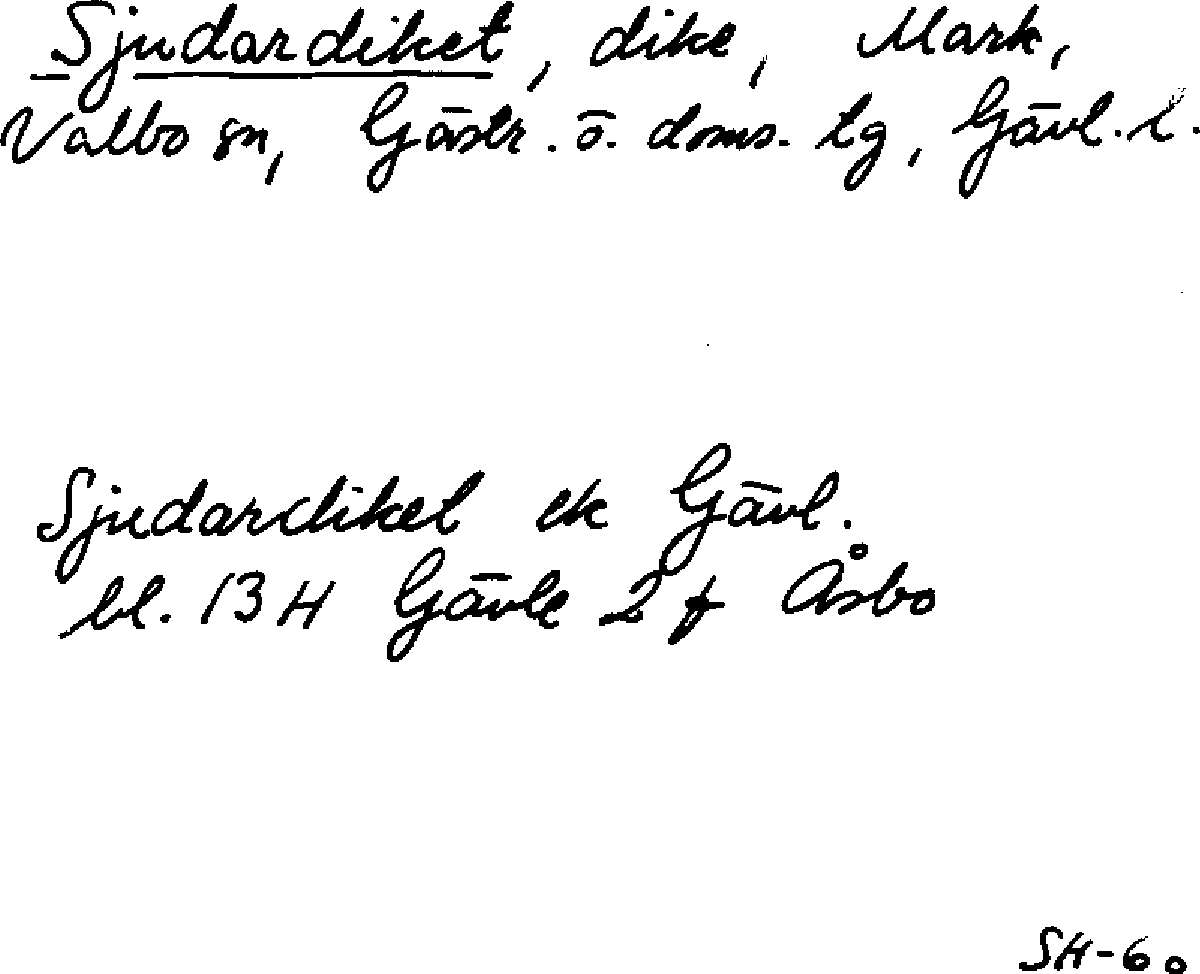 Sjudardiket, dike, Mark,
Valbo sn, Gästr. ö. doms. tg, Gävl. l.
Sjudardiket ek Gävl.
bl. 13H Gävle 2 f Åsbo
SH-60